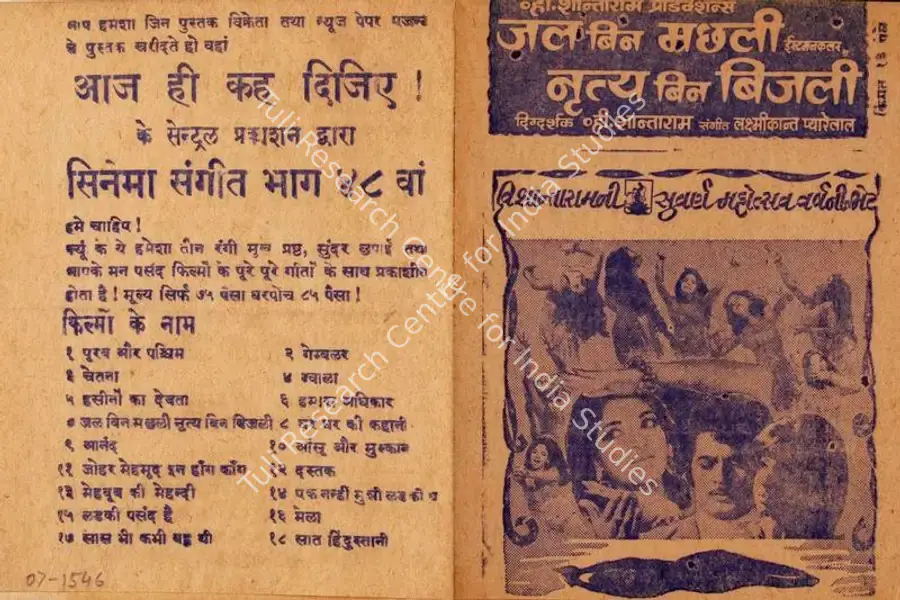 आप हमेशा जिन पुस्तक विक्रेता तथा न्यूज पेपर एजन्ट
से पुस्तक खरीदते हो वहां
आज ही कह दिजिए !
के सेन्ट्रल प्रकाशन द्वारा
सिनेमा संगीत भाग ४८ वां
हमे चाहिए !
क्यूं के ये हमेशा तीन रंगी मुख प्रष्ठ, सुंदर छपाई तथा
आपके मन पसंद फिल्मों के पूरे पूरे गीतों के साथ प्रकाशीत
होता है ! मूल्य सिर्फ ७५ पैसा घरपोच ८५ पैसा !
फिल्मों के नाम
१ पूरब और पश्चिम
२ गेम्बलर
३ चेतना
४ ग्वाला
५ हसीनों का देवता
६ हमारा अधिकार
७ जल बिन मछली नृत्य बिन बिजली
८ घर घर की कहानी
९ आनंद
१० आंसू और मुस्कान
११ जोहर मेहमूद इन हाँग काँग
१२ दस्तक
१३ मेहबूब की मेहन्दी
१४ एक नन्हीं मुन्नी लडकी थी
१५ लडकी पसंद है
१६ मेला
१७ सास भी कभी बहू थी
१८ सात हिंदुस्तानी
07-1546
व्ही. शान्ताराम प्रॉडक्शन्स
जल बिन मछली इस्टमनकलर
नृत्य बिन बिजली
दिग्दर्शक व्ही. शान्ताराम संगीत लक्ष्मीकान्त प्यारेलाल
किंमत १३ पैसे
विशान्तारामनी सुवर्ण महोत्सव वर्षनी भेट
Tuli Research Centre for India Studies
Tuli Research Centre for India Studies